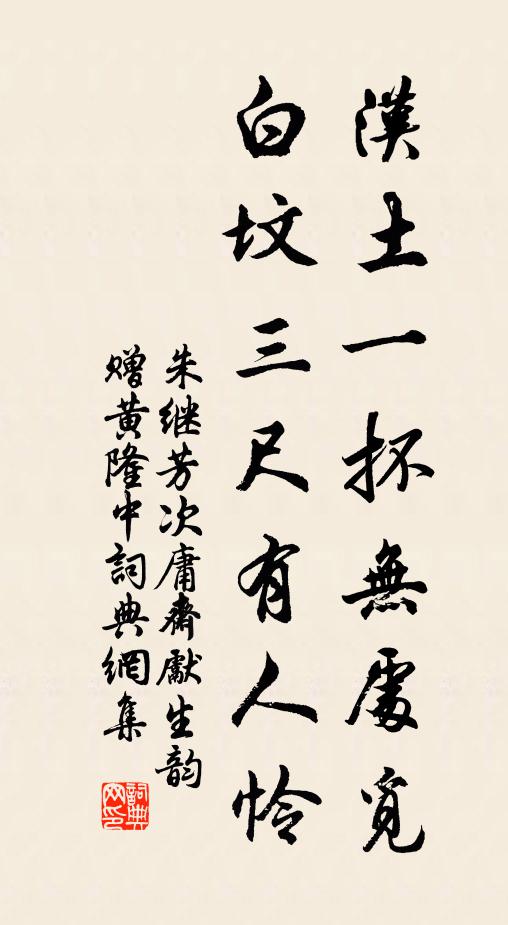 漢土一抔無處覓
白墳三尺有人怜
朱继芳次庸齋獻生韵
赠黄隆中詞典網集
詞典网印